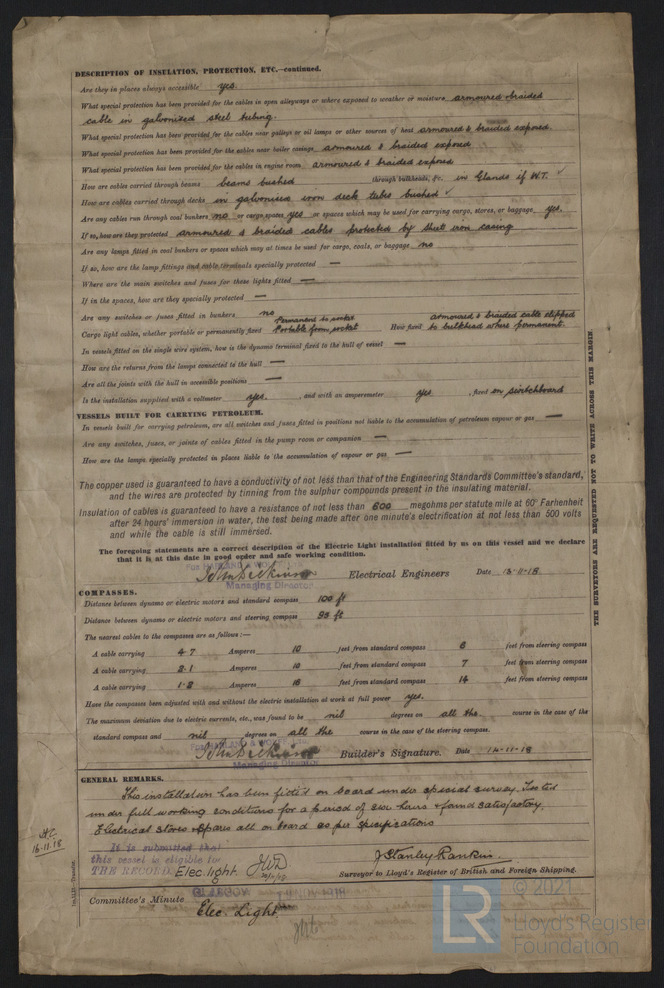 DESCRIPTION OF INSULATION, PROTECTION, ETC.—continued.
Are they in places always accessible yes.
What special protection has been provided for the cables in open alleyways or where exposed to weather or moisture armoured & braided
cable in galvanized steel tubing.
What special protection has been provided for the cables near galleys or oil lamps or other sources of heat armoured & braided exposed
What special protection has been provided for the cables near boiler casings armoured & braided exposed
What special protection has been provided for the cables in engine room armoured & braided exposed
How are cables carried through beams beams bushed through bulkheads, &c. in Glands if W.T. ✓
How are cables carried through decks in galvanised iron deck tubes bushed ✓
Are any cables run through coal bunkers no or cargo spaces yes or spaces which may be used for carrying cargo, stores, or baggage yes.
If so, how are they protected armoured & braided cables protected by sheet iron casing
Are any lamps fitted in coal bunkers or spaces which may at times be used for cargo, coals, or baggage no
If so, how are the lamp fittings and cable terminals specially protected —
Where are the main switches and fuses for these lights fitted —
If in the spaces, how are they specially protected —
Are any switches or fuses fitted in bunkers no
Cargo light cables, whether portable or permanently fixed Permanent to socket Portable from socket How fixed armoured & braided cable clipped to bulkhead where permanent.
In vessels fitted on the single wire system, how is the dynamo terminal fixed to the hull of vessel —
How are the returns from the lamps connected to the hull —
Are all the joints with the hull in accessible positions —
Is the installation supplied with a voltmeter yes. , and with an amperemeter yes , fixed on switchboard
VESSELS BUILT FOR CARRYING PETROLEUM.
In vessels built for carrying petroleum, are all switches and fuses fitted in positions not liable to the accumulation of petroleum vapour or gas —
Are any switches, fuses, or joints of cables fitted in the pump room or companion —
How are the lamps specially protected in places liable to the accumulation of vapour or gas —
The copper used is guaranteed to have a conductivity of not less than that of the Engineering Standards Committee's standard,
and the wires are protected by tinning from the sulphur compounds present in the insulating material.
Insulation of cables is guaranteed to have a resistance of not less than 600 megohms per statute mile at 60° Farhenheit
after 24 hours' immersion in water, the test being made after one minute's electrification at not less than 500 volts
and while the cable is still immersed.
The foregoing statements are a correct description of the Electric Light installation fitted by us on this vessel and we declare
that it is at this date in good order and safe working condition.
Electrical Engineers Date 13-11-18
Managing Director
COMPASSES.
Distance between dynamo or electric motors and standard compass 100 ft
Distance between dynamo or electric motors and steering compass 95 ft
The nearest cables to the compasses are as follows:—
A cable carrying 4.7 Amperes 10 feet from standard compass 6 feet from steering compass
A cable carrying 2.1 Amperes 10 feet from standard compass 7 feet from steering compass
A cable carrying 1.2 Amperes 16 feet from standard compass 14 feet from steering compass
Have the compasses been adjusted with and without the electric installation at work at full power yes.
The maximum deviation due to electric currents, etc., was found to be nil degrees on all the course in the case of the
standard compass and nil degrees on all the course in the case of the steering compass.
Builder's Signature. Date 14-11-18
Managing Director
GENERAL REMARKS.
This installation has been fitted on board under special survey. Tested
under full working conditions for a period of six hours & found satisfactory.
Electrical stores & spares all on board as per specifications
16.11.18
It is submitted that
this vessel is eligible for
THE RECORD. Elec. light.
J Stanley Rankin.
Surveyor to Lloyd's Register of British and Foreign Shipping.
Committee's Minute
Elec. Light
THE SURVEYORS ARE REQUESTED NOT TO WRITE ACROSS THIS MARGIN.
© 2021
LR
Lloyd's Register
Foundation